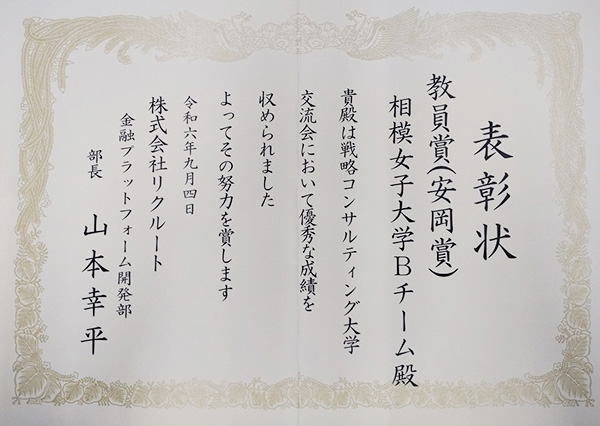 表彰状
教員賞(安岡賞)
相模女子大学Bチーム殿
貴殿は戦略コンサルティング大学
交流会において優秀な成績を
収められました
よってその努力を賞します
令和六年九月四日
株式会社リクルート
金融プラットフォーム開発部
部長 山本幸平